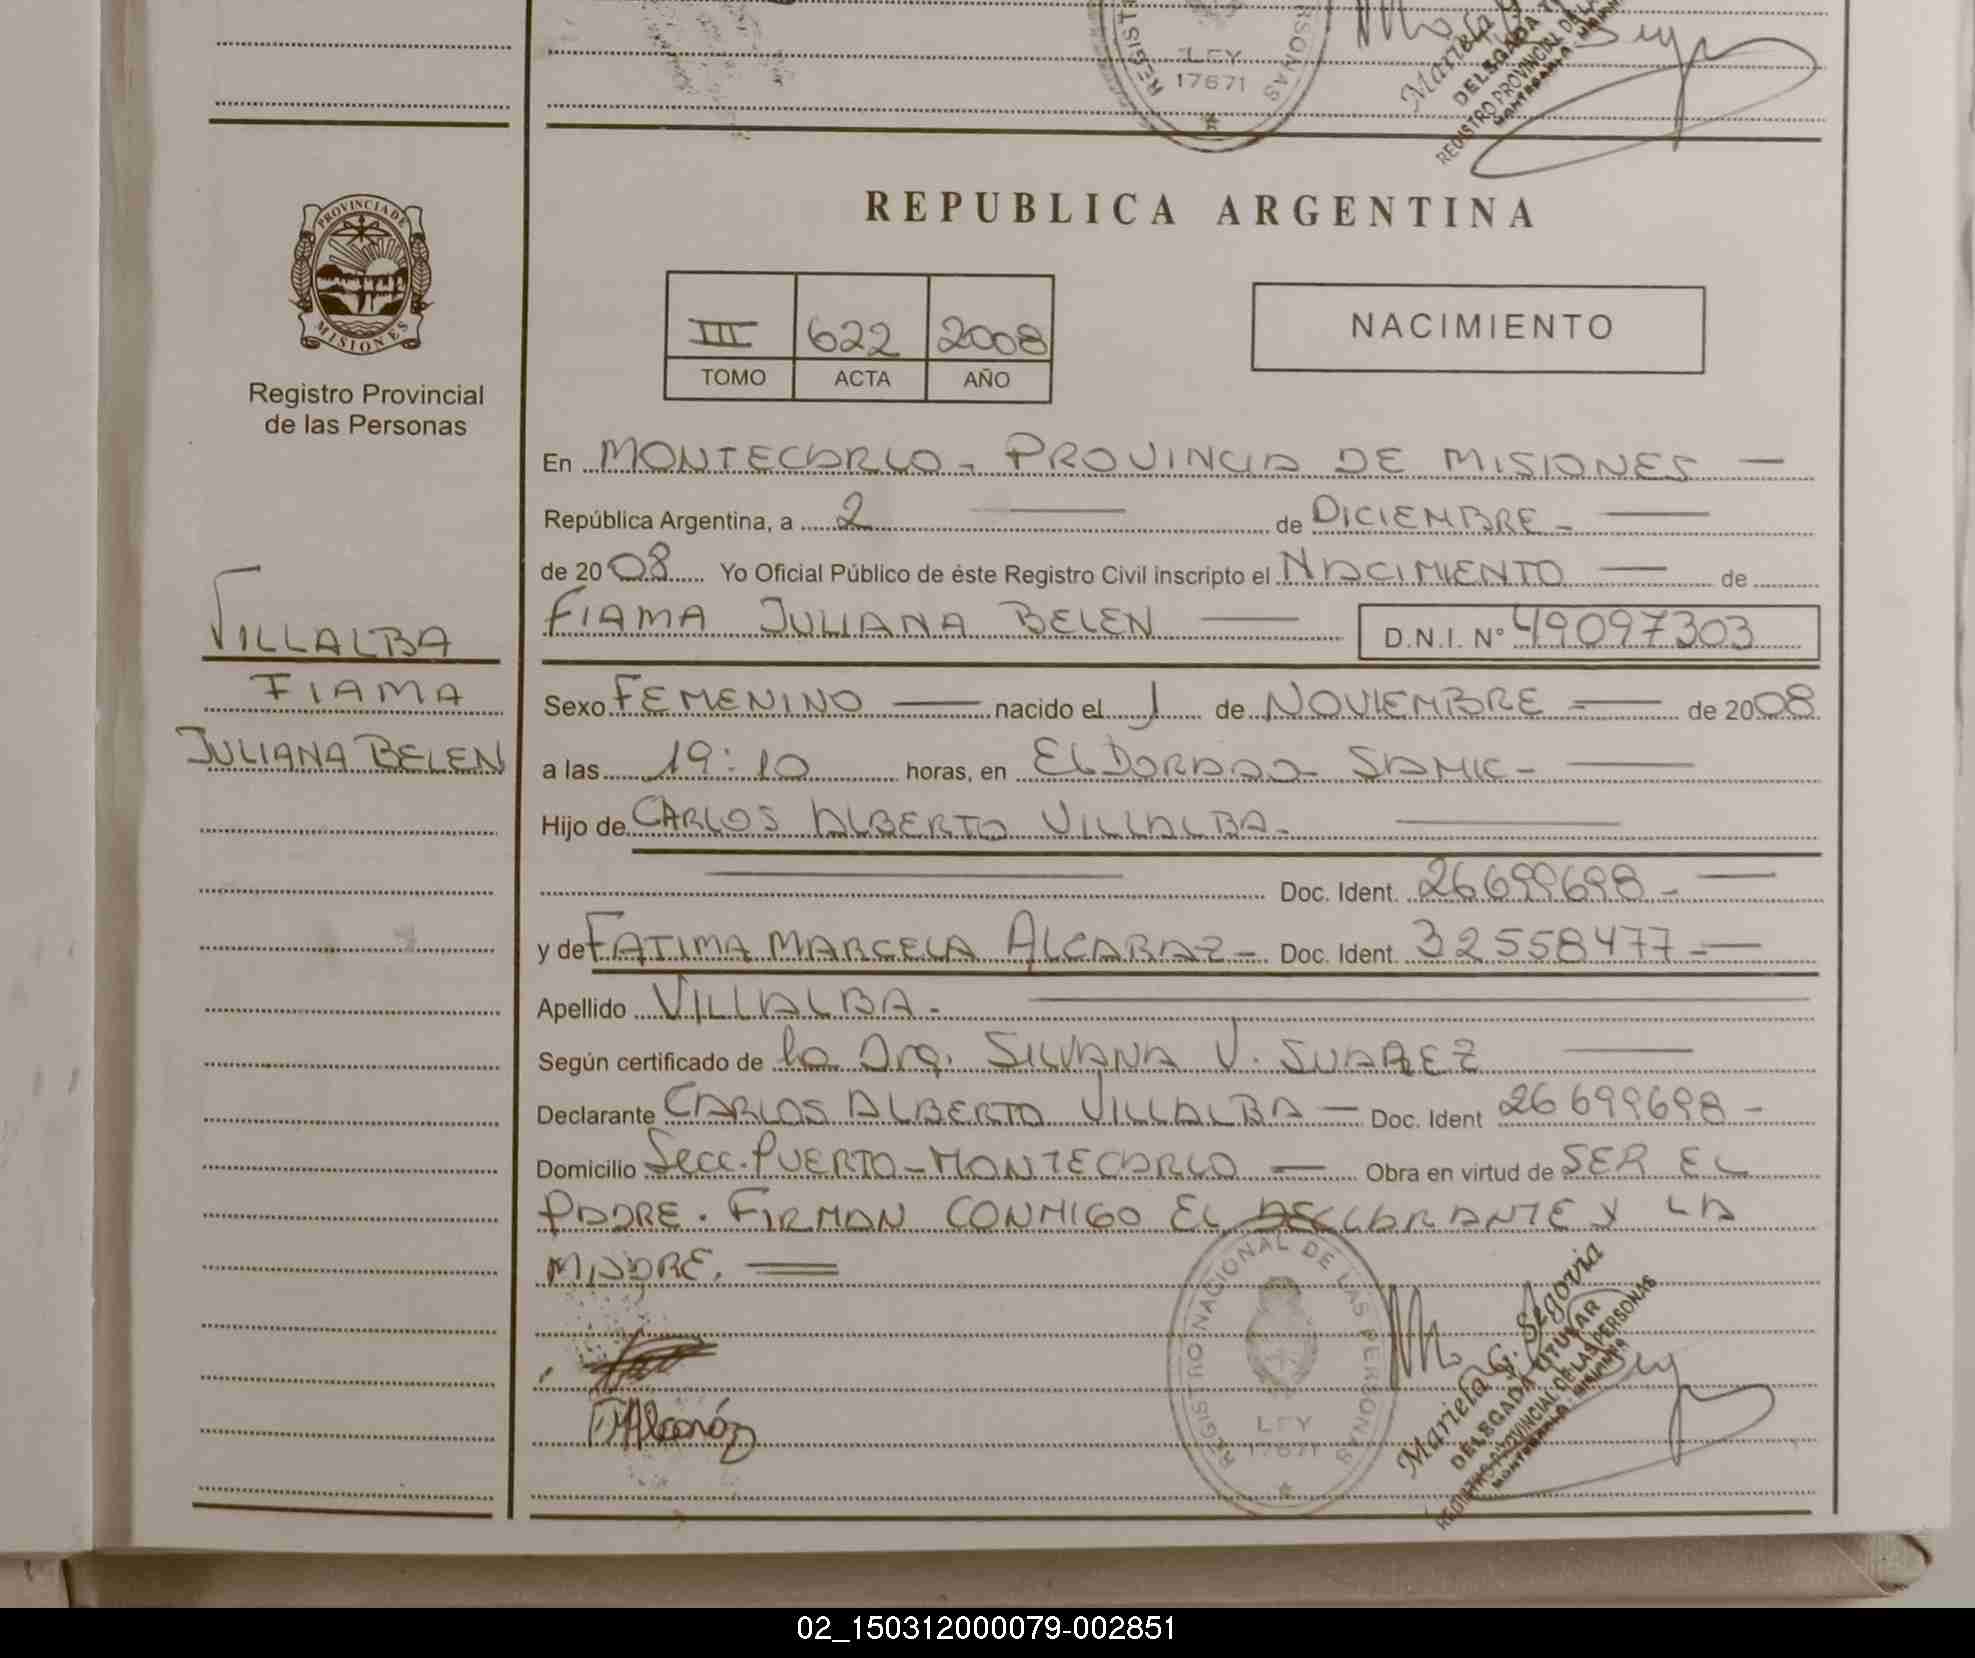 LEY
17671
REPUBLICA ARGENTINA
PROVINCIA DE
MISIONES
Registro Provincial
de las Personas
III 622 2008
TOMO ACTA AÑO
NACIMIENTO
En MONTECARLO - PROVINCIA DE MISIONES —
República Argentina, a 2 — de DICIEMBRE - —
de 2008 Yo Oficial Público de éste Registro Civil inscripto el NACIMIENTO — de
FIAMA JULIANA BELEN — D.N.I. N° 49097303
VILLALBA
FIAMA
JULIANA BELEN
Sexo FEMENINO — nacido el 1 de NOVIEMBRE — de 2008
a las 19:10 horas, en ELDORADO - SAMIC - —
Hijo de CARLOS ALBERTO VILLALBA - —
— Doc. Ident. 26699698 - —
y de FATIMA MARCELA ALCARAZ - Doc. Ident. 32558477 - —
Apellido VILLALBA - —
Según certificado de la SILVANA V. SUAREZ —
Declarante CARLOS ALBERTO VILLALBA — Doc. Ident 26699698 -
Domicilio Secc. PUERTO - MONTECARLO — Obra en virtud de SER EL
PADRE. FIRMAN CONMIGO EL DECLARANTE Y LA
MADRE. =
REGISTRO NACIONAL DE LAS PERSONAS
LEY
17671
Mariela G. Segovia
DELEGADA TITULAR
REGISTRO PROVINCIAL DE LAS PERSONAS
MONTECARLO - MISIONES
F. Alcaráz
02_150312000079-002851